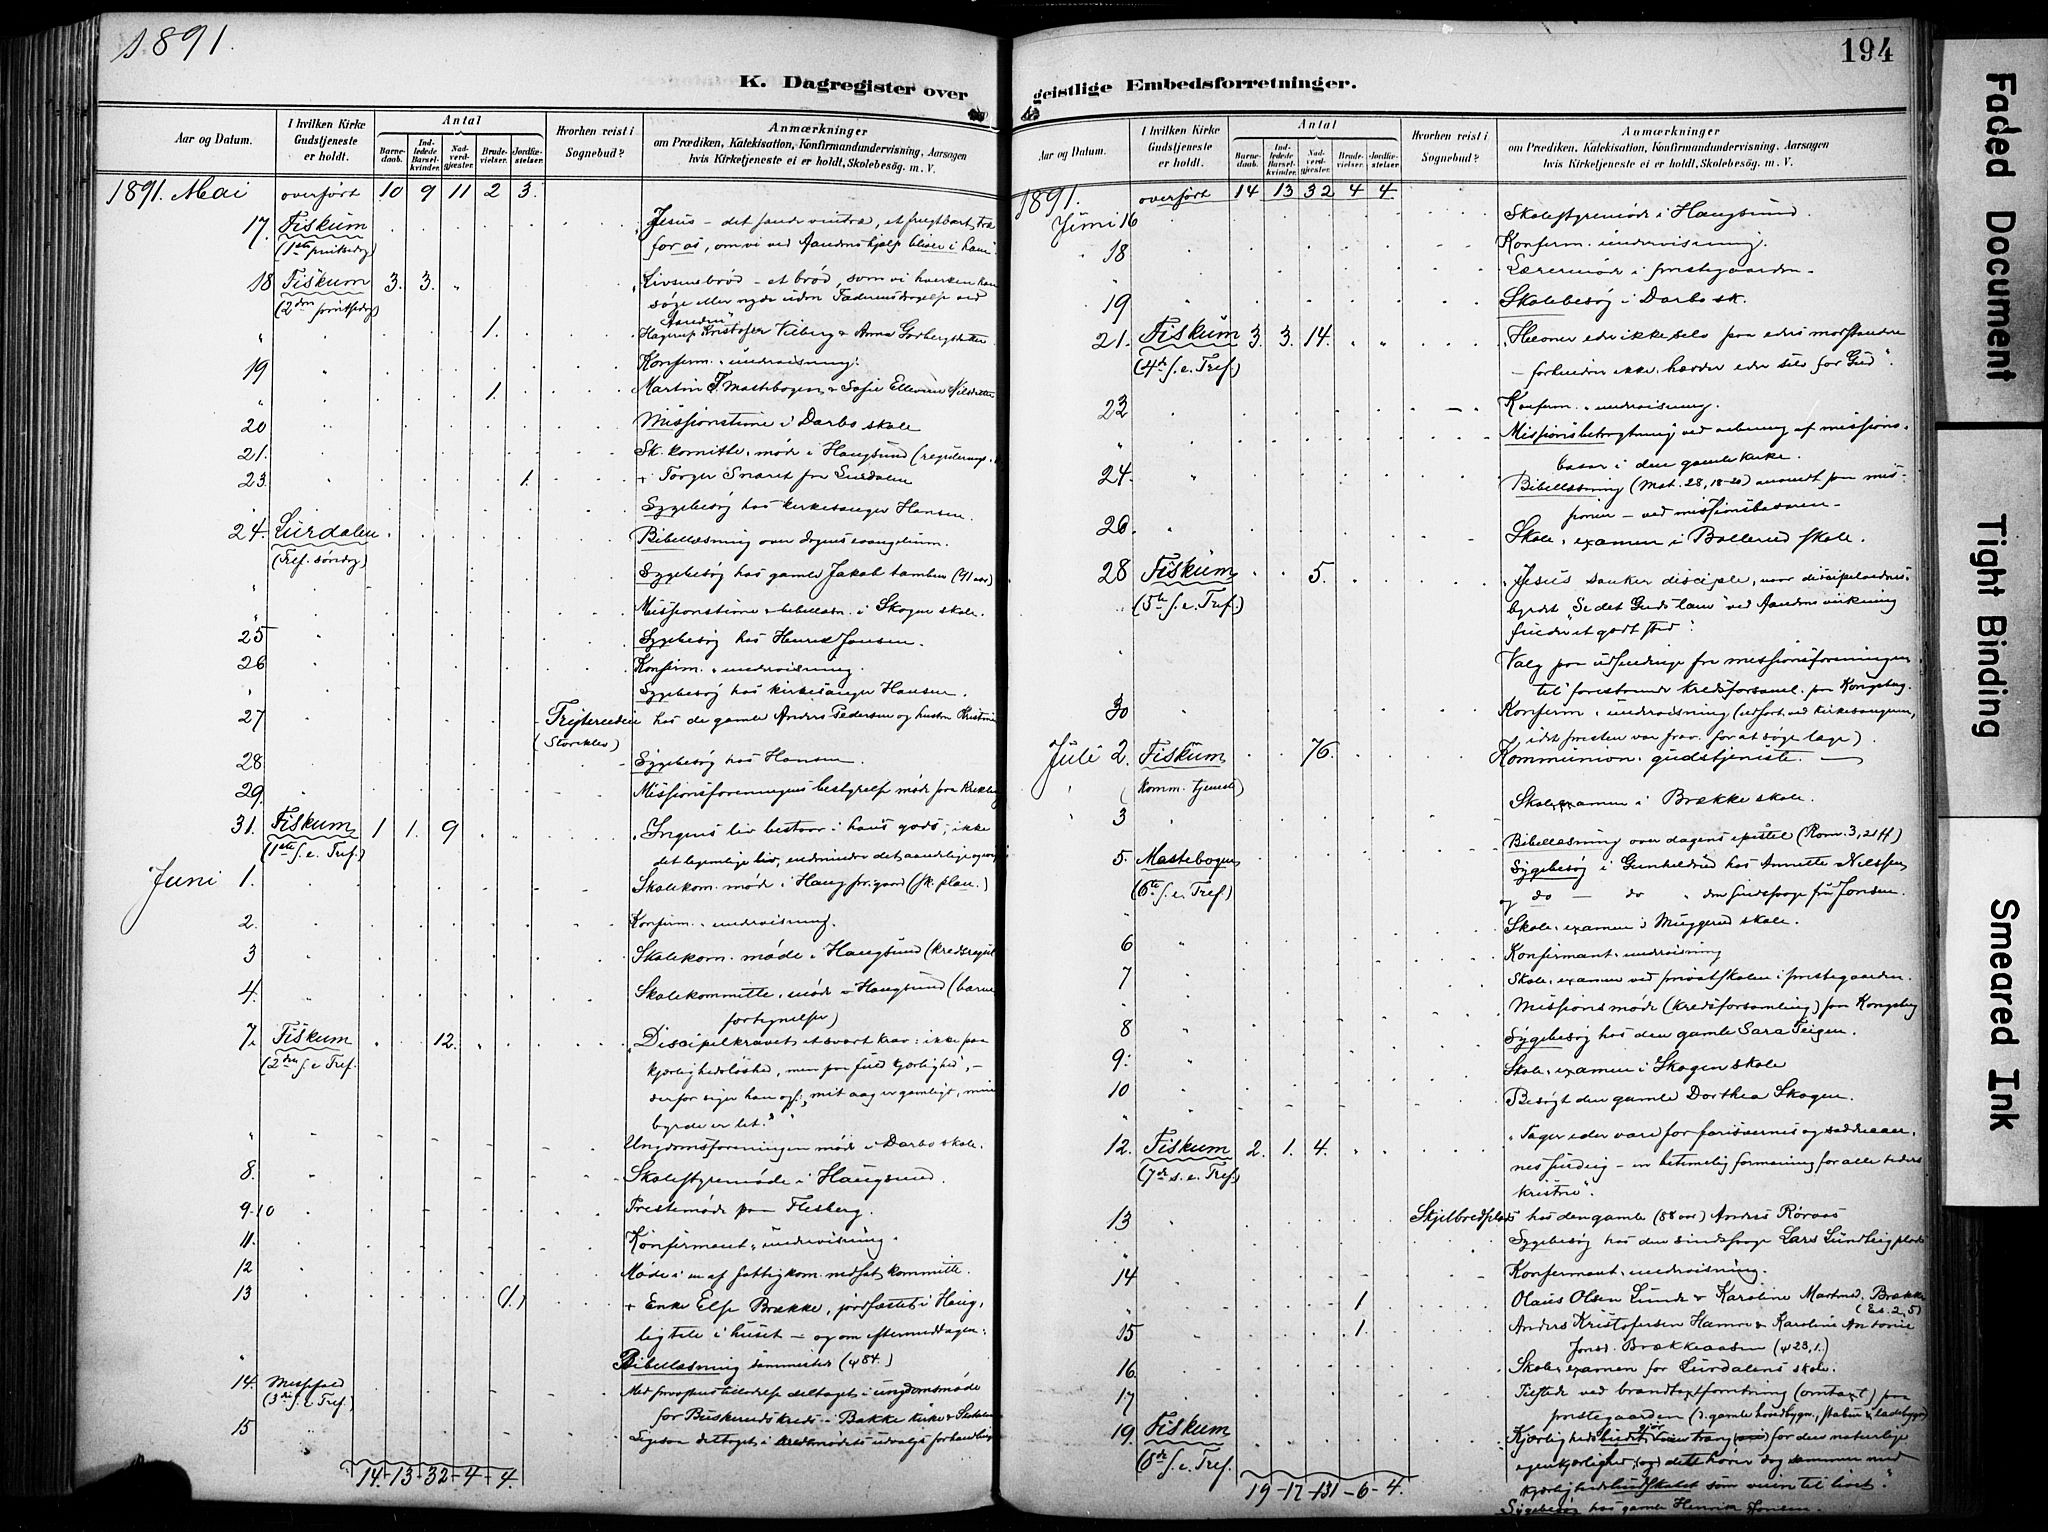 1891.
K. Dagregister over
Aar og Datum.
I hvilken Kirke Gudstjeneste er holdt.
Antal
Barnedaab.
Indledede Barselkvinder.
Nadverdgjester.
Brudevielser.
Jordfæstelser.
Hvorhen reist i Sognebud?
Anmærkninger
om Prædiken, Katekisation, Konfirmandundervisning, Aarsagen
hvis Kirketjeneste ei er holdt, Skolebesög. m. V.
1891. Mai overført 10 9 11 2 3.
17. Fiskum Jesus - det sande vintræ, et frugtbart træ
(1ste pintsedag) for os, om vi ved Aandens hjelp bliver i ham
18 Fiskum 3. 3. " Livsens brød - et brød, som vi hverken kan
(2den pintsedag) søge eller nyde uden Faderens dragelse ved
Aanden"
" 1. Hagerup Kristofer Vilberg & Anna
19 " Konfirm. undervisning.
" 1. Martin T. Mastebogen & Sofie Ellevine Nilsdatter
20 Missionstime i Darbo skole
21. Sk. komitte møde i Haugsund (regulering
23. 1. + Torger Snaret fra Surdalen
Sygebesøg hos kirkesanger Hansen.
24. Surdalen Bibellæsning over dagens evangelium.
(Tref. søndag)
" Sygebesøg hos gamle Jakob (91 aar)
" Missionstime & bibellæsn. i Skogen skole.
25 " Sygebesøg hos Henrik Jonsen.
26 " Konfirm. undervisning.
Sygebesøg hos kirkesanger Hansen.
27 hos de gamle Anders Pedersen og hustru
28. Sygebesøg hos Hansen.
29. Missionsforeningens bestyrelse møde paa
31. Fiskum 1 1. 9 "Ingens liv bestaar i hans gods; ikke
(1ste s. e. Tref.) det legemlige liv, endmindre det aandelige og
Juni 1. Skolekom. møde i Haug (sk. plan.)
2. Konfirm. undervisning.
3 Skolekom. møde i Haugsund (kredsregul
4. Skolekommitte. møde i Haugsund (barne
fortegnelser)
7. Fiskum 12. "Discipelkravet et svært krav: ikke paa
(2den s. e. Tref. kjærlighedsløshed, men paa fuld kjærlighed, -
derfor siger han og: "mit aag er gavnligt, min
byrde er let."
" Ungdomsforeningen møde i Darbo skole.
8. Skolestyremøde i Haugsund.
9-10 Prestemøde paa Flesberg.
11. Konfirmant-undervisning.
12 Møde i en af fattigkom. nedsat kommitte.
13 (1.) + Enke Else Brække, jordfæstet i Haug,
ligtale i huset - og om eftermiddagen:
" Bibellæsning sammested (ψ 84.)
14. Medprovstens tilladelse deltaget i ungdomsmøde
(3die s. e. Tref.) for Buskeruds kreds - i Bakke kirke &
15 Ligesaa deltaget i kredsmødets udvalgs forhandling
14 - 13 - 32 - 4 - 4.
194
geistlige Embedsforretninger.
Aar og Datum.
I hvilken Kirke Gudstjeneste er holdt.
Antal
Barnedaab.
Indledede Barselkvinder.
Nadverdgjester.
Brudevielser.
Jordfæstelser.
Hvorhen reist i Sognebud?
Anmærkninger
om Prædiken, Katekisation, Konfirmandundervisning, Aarsagen
hvis Kirketjeneste ei er holdt, Skolebesög. m. V.
1891. overført 14 13 32 4 4
Juni 16 Skolestyremøde i Haugsund.
" 18 Konfirm. undervisning.
" Læreremøde i prestegaarden -
19 Skolebesøg i Darbo sk.
21. Fiskum 3. 3. 14. "Hevner eder ikke selv paa eders modstandere
(4de s. e. Tref.) - forhindre ikke: hærder eder selv for Gud".
22 Konfirm. undervisning.
" Missionsbetragtning ved aabning af missions-
basar i den gamle kirke.
24. Bibellæsning (Mat. 28, 18-20) anvendt paa mis-
sionen - ved missionsbasaren -
26 Skole-examen i Bollerud skole.
28 Fiskum 5. "Jesus sanker disciple, naar discipelordnes
(5te s. e. Tref.) byrdes "Se det Guds lam" ved Aandens virkning
finder et godt sted".
" Valg paa udsendinge fra missionsforeningen
til forestaaende kredsforsaml. paa Kongsberg.
30 Konfirm. undervisning (udført ved kirkesangeren,
idet presten var frav. for at søge læge).
Juli 2. Fiskum 76. Kommunion-gudstjeneste.
" (komm. tjeneste) Skole-examen i Brække skole.
" 3 Bibellæsning over dagens epistel (Rom. 3, 21 ff)
5. Mastebogen Sygebesøg i Gunhildrud hos Annette Nilssen
(6te s. e. Tref.) og do - do " den sindssvage fru Jonsen.
" Skole-examen i Muggerud skole.
6 " Konfirmant-undervisning
7 Skole-examen ved privatskolen i prestegaarden.
" Missionsmøde (kredsforsamling) paa Kongsberg
8 " Sygebesøg hos den gamle Sara Teigen.
9. Skole-examen i Skogen skole
10 Besøgt den gamle Dorthea Skogen.
12. Fiskum 2. 1. 4. "Tager eder vare for farisæernes og saddukæer-
(7de s. e. Tref.) nes surdeig - en betimelig formaning for alle tiders
kristne".
13 Skjelbredplads hos den gamle (88 aar) Anders Røraas
" Sygebesøg hos den sindssvage Lars Lundteigplads
14 Konfirmant-undervisning.
" 1 Olaus Olsen Lunde & Karoline Martined. Brække
(Es. 2, 5)
15 1. Anders Kristofersen Hamre & Karoline Antonie
Jonsd. Brækkeaasen (ψ 23, 1.)
16 Skole-examen for Surdalens skole.
17 Tilstede ved brandtaxtforretning (omtaxt) paa
prestegaarden (d. gamle hovedbygn., stabur & ladebygn)
19. Fiskum Kjærlighedsbudet for den naturlige
(8de s. e. Tref. egenkjærlighed, (og) dette hører dog sammen med
kjærlighedsbudskabet som veien til livet".
Sygebesøg hos gamle Henrik Jonsen.
19 - 17 - 131 - 6 - 4.
Faded Document
Tight Binding
Smeared Ink